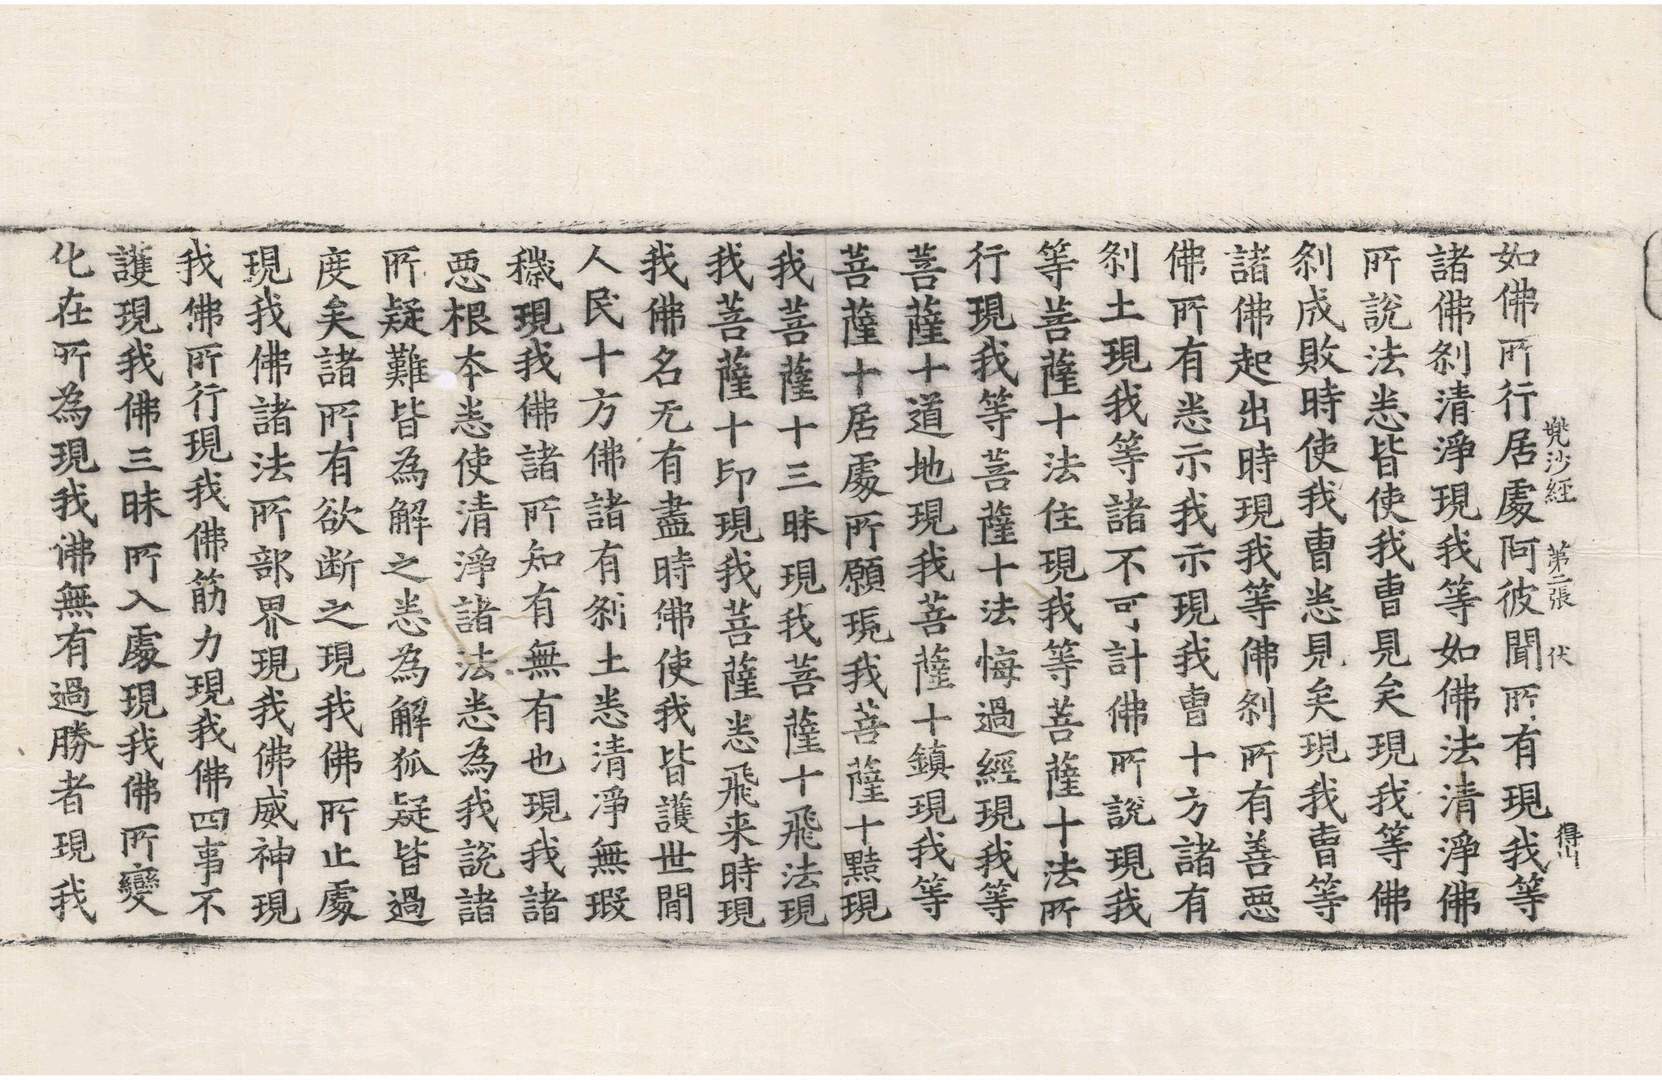 兜沙經 第二張 伏 得山
如佛所行居處阿彼聞所有現我等
諸佛刹清淨現我等如佛法清淨佛
所說法悉皆使我曹見矣現我等佛
刹成敗時使我曹悉見矣現我曹等
諸佛起出時現我等佛刹所有善悪
佛所有悉示我示現我曹十方諸有
刹土現我等諸不可計佛所說現我
等菩薩十法住現我等菩薩十法所
行現我等菩薩十法悔過經現我等
菩薩十道地現我菩薩十鎮現我等
菩薩十居處所願現我菩薩十黠現
我菩薩十三昧現我菩薩十飛法現
我菩薩十印現我菩薩悉飛来時現
我佛名无有盡時佛使我皆護世間
人民十方佛諸有刹土悉清淨無瑕
穢現我佛諸所知有無有也現我諸
悪根本悉使清淨諸法悉為我說諸
所疑難皆為解之悉為解狐疑皆過
度矣諸所有欲断之現我佛所止處
現我佛諸法所部界現我佛威神現
我佛所行現我佛筋力現我佛四事不
護現我佛三昧所入處現我佛所變
化在所為現我佛無有過勝者現我